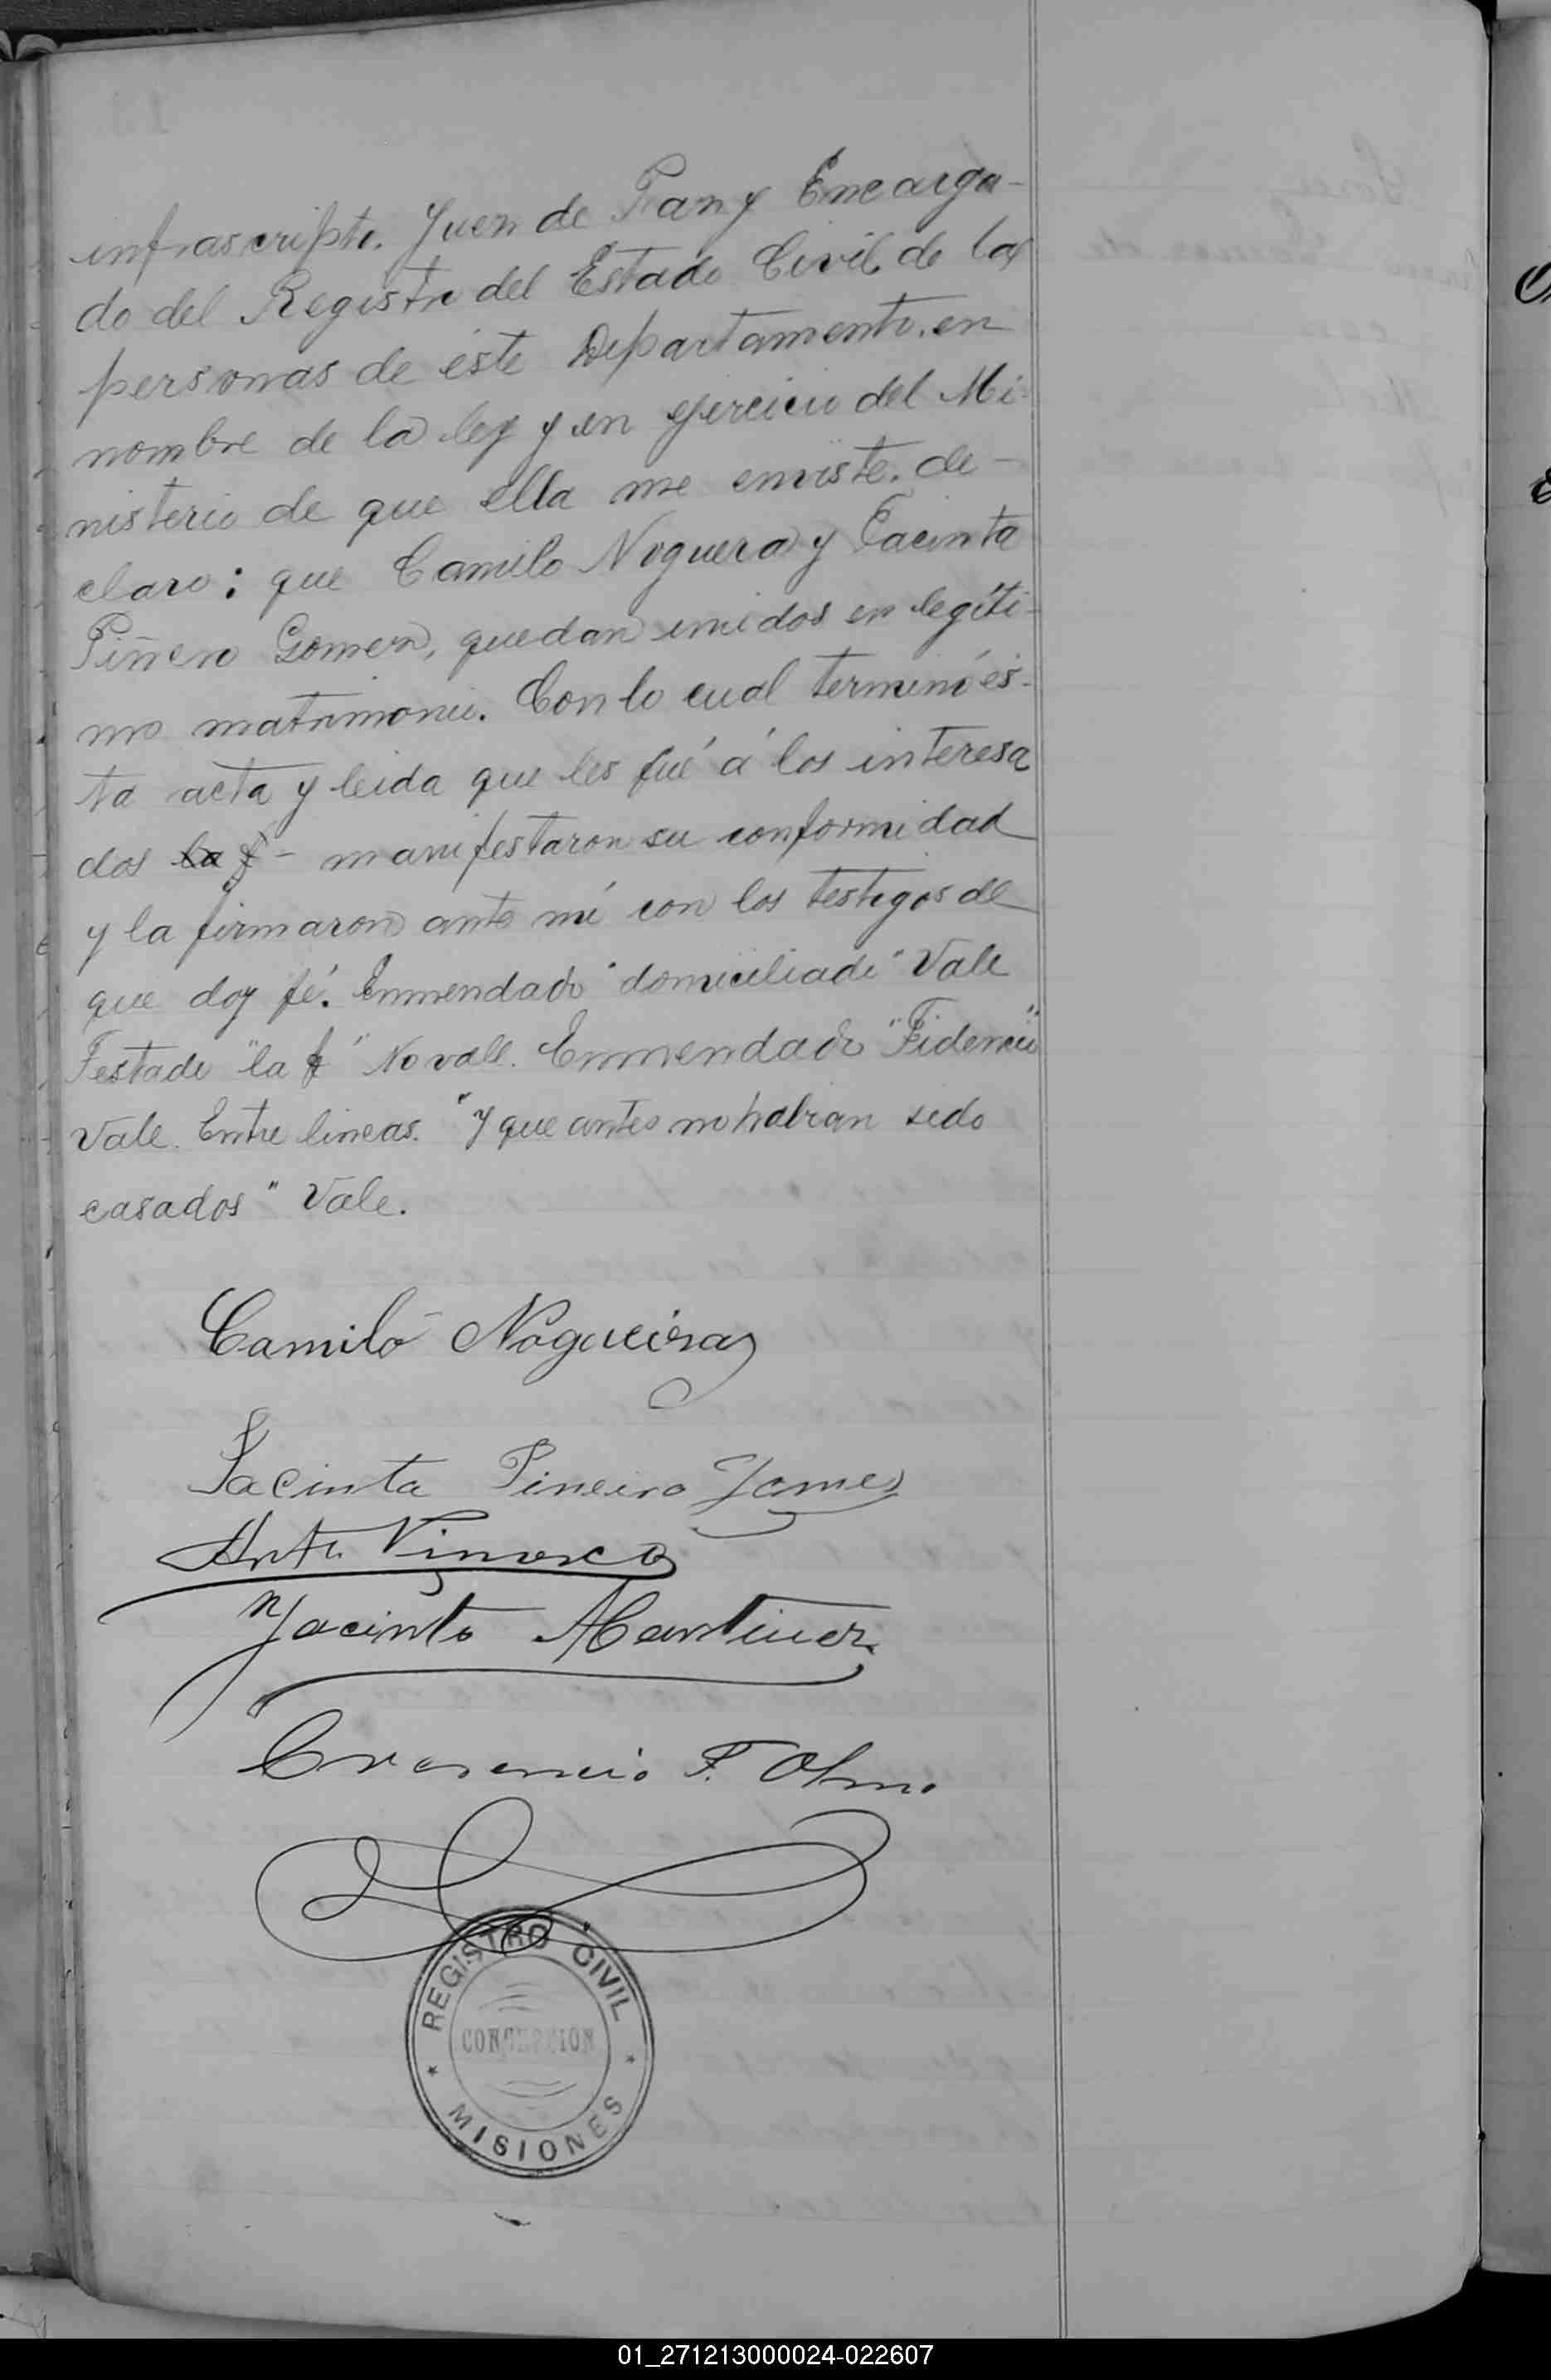 infrascripto. Juez de Paz y Encarga-
do del Registro del Estado Civil de las
personas de éste Departamento, en
nombre de la ley y en ejercicio del Mi-
nisterio de que ella me enviste, de-
claro: que Camilo Noguera y Jacinta
Piñero Gomez, quedan unidos en legíti-
mo matrimonio. Con lo cual terminó és-
ta acta y leida que les fué á los interesa
dos la f - manifestaron su conformidad
y la firmaron ante mí con los testigos de
que doy fé. Enmendado "domiciliado" Vale
Testado "la f" No vale. Enmendado "Fidencio"
Vale. Entre lineas. "Y que antes no habian sido
casados" Vale.
Camilo Nogueira
Jacinta Pineiro Gomez
Jacinto Martinez
F. Olmo
REGISTRO CIVIL
CONCEPCION
MISIONES
01_271213000024-022607